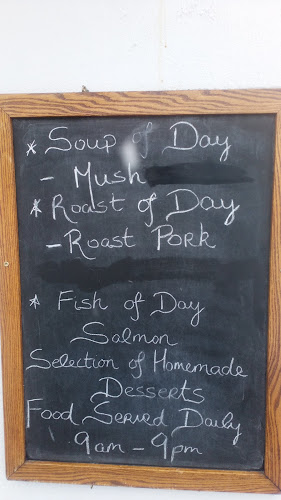 * Soup of Day
- Mush
* Roast of Day
- Roast Pork
* Fish of Day
Salmon
Selection of Homemade
Desserts
Food Served Daily
9am - 9pm